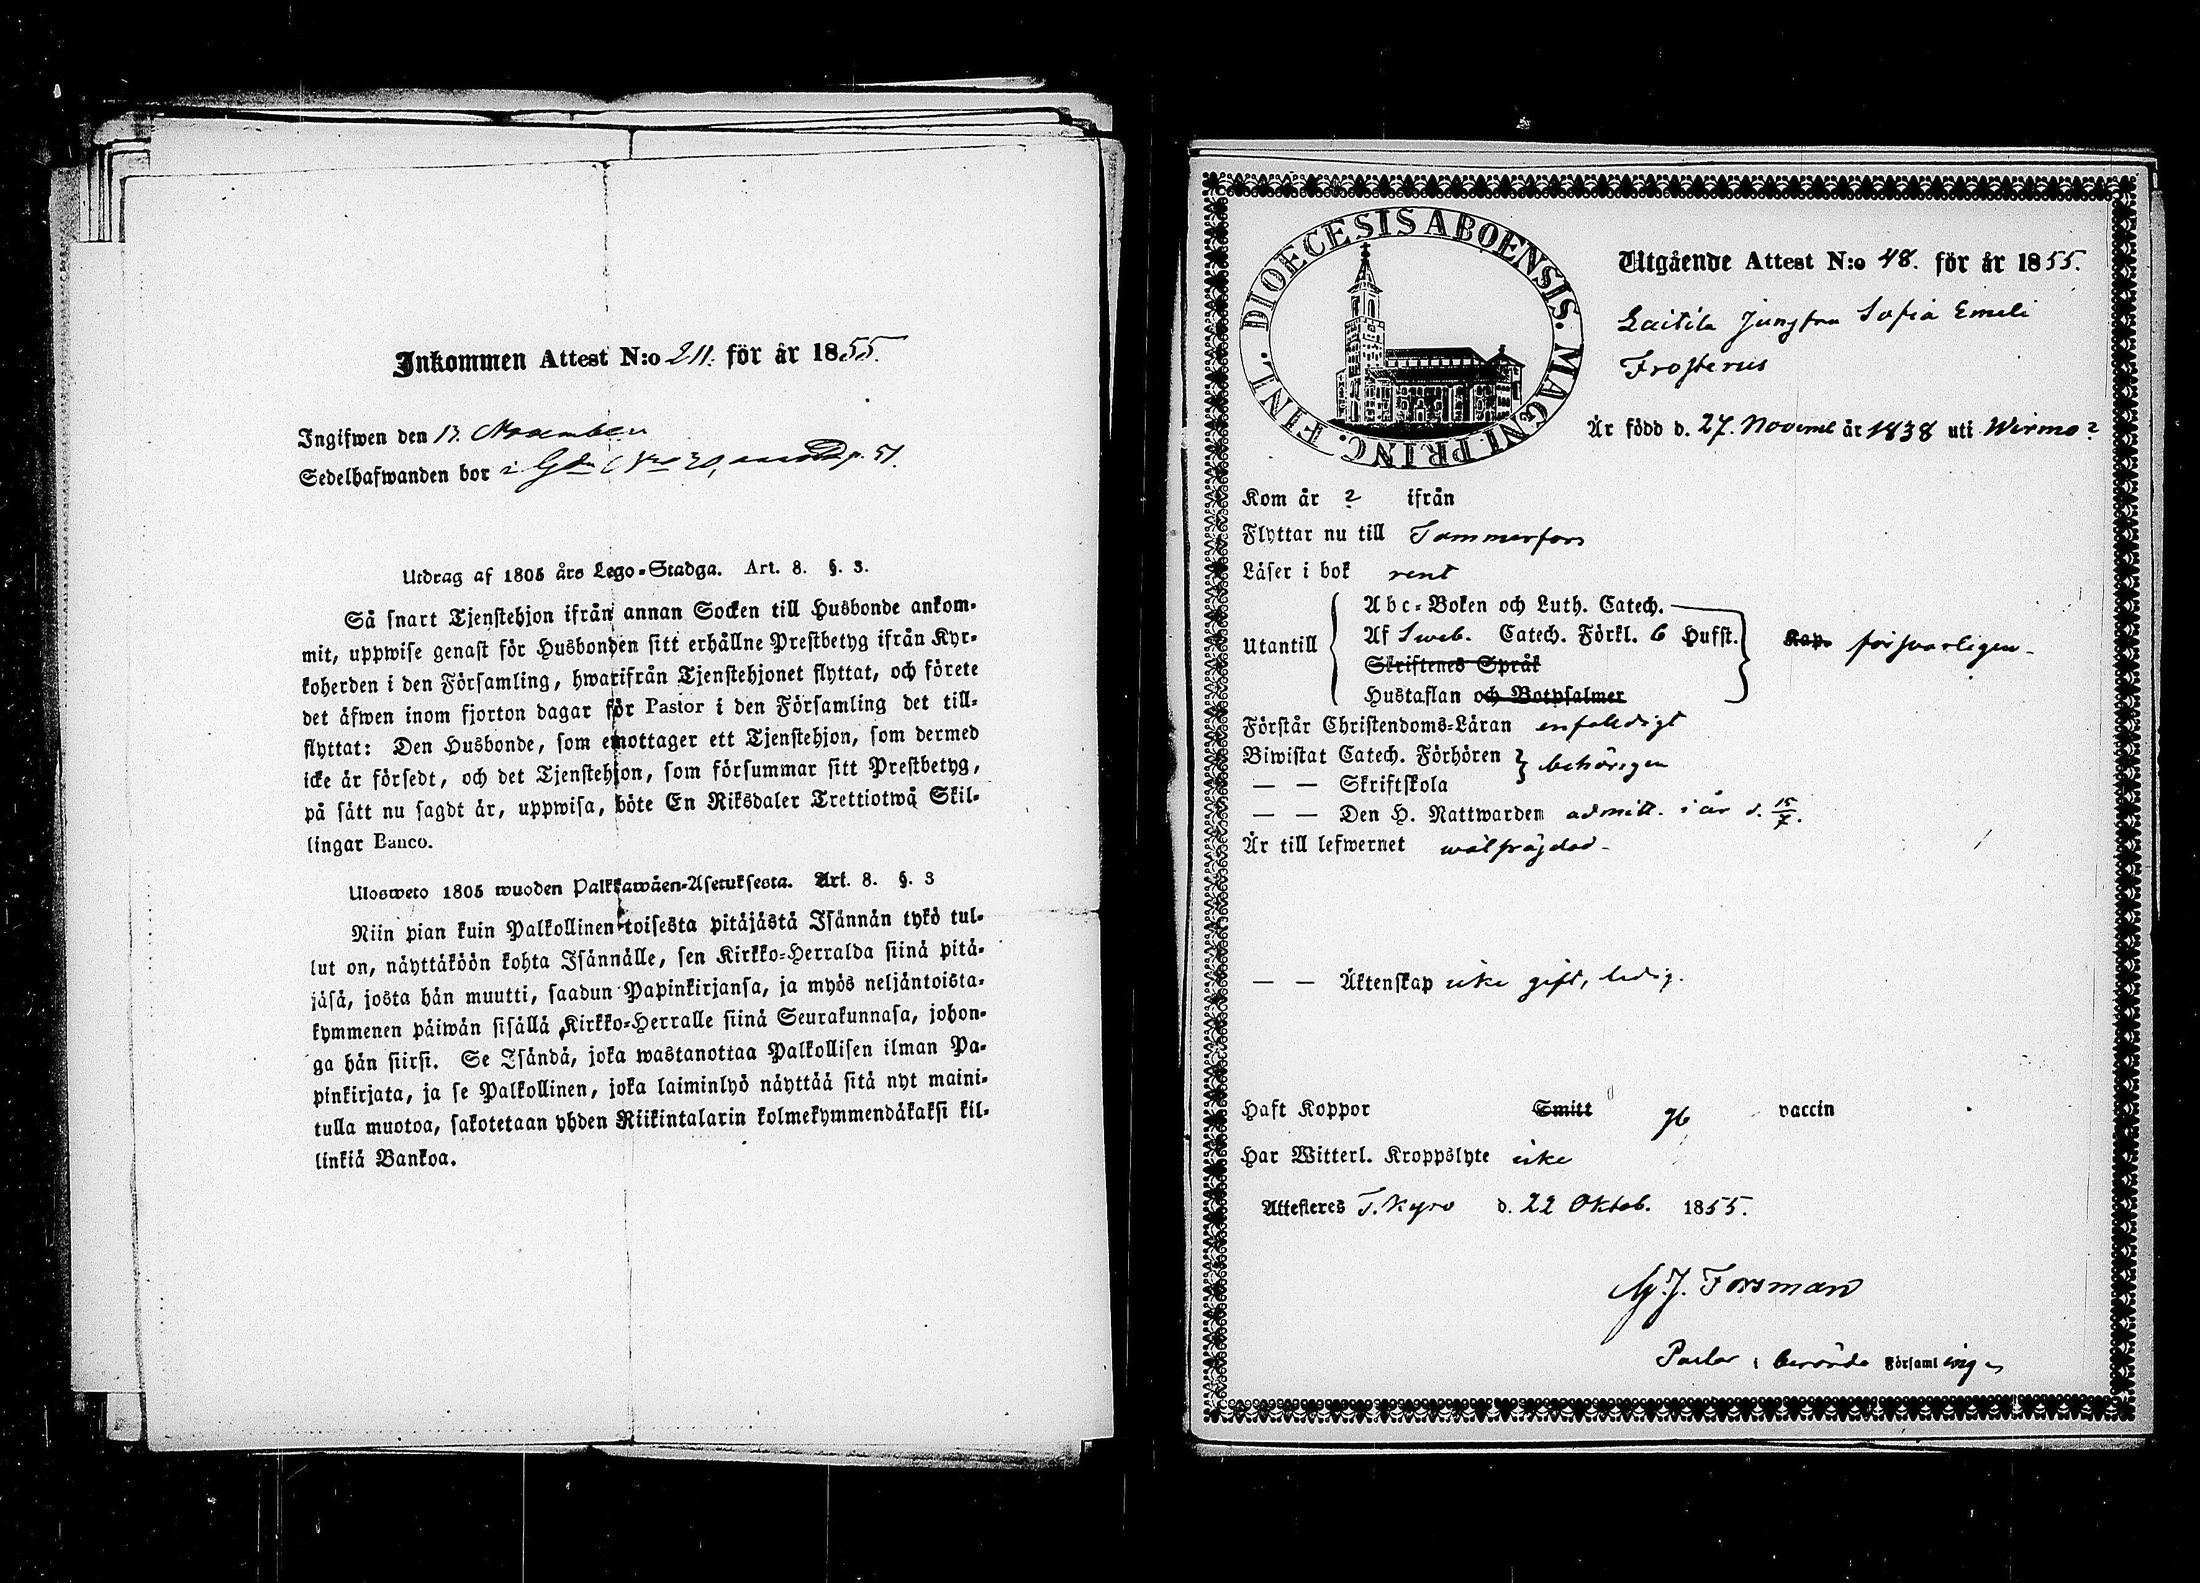 Inkommen Attest N:o 211. för år 1855.
Ingifwen den 13. November
Sedelhafwanden bor i p. 51.
Utdrag af 1805 års Lego-Stadga. Art. 8. §. 3.
Så snart Tjenstehjon ifrån annan Socken till Husbonde ankom-
mit, uppwise genast för Husbonden sitt erhållne Prestbetyg ifrån Kyr-
koherden i den Församling, hwarifrån Tjenstehjonet flyttat, och förete
det äfwen inom fjorton dagar för Pastor i den Församling det till-
flyttat: Den Husbonde, som emottager ett Tjenstehjon, som dermed
icke är försedt, och det Tjenstehjon, som försummar sitt Prestbetyg,
på sätt nu sagdt är, uppwisa, böte En Riksdaler Trettiotwå Skil-
lingar Banco.
Ulosweto 1805 wuoden Palkkawäen-Asetuksesta. Art. 8. §. 3
Niin pian kuin Palkollinen toisesta pitäjästä Isännän tykö tul-
lut on, näyttäköön kohta Isännälle, sen Kirkko-Herralda siinä pitä-
jäsä, josta hän muutti, saadun Papinkirjansa, ja myös neljäntoista-
kymmenen päiwän sisällä Kirkko-Herralle siinä Seurakunnasa, johon-
ga hän siirsi. Se Isändä, joka wastanottaa Palkollisen ilman Pa-
pinkirjata, ja se Palkollinen, joka laiminlyö näyttää sitä nyt maini-
tulla muotoa, sakotetaan yhden Riikintalarin kolmekymmendäkaksi kil-
linkiä Bankoa.
FINL. DIOECESIS ABOENSIS. MAGNI PRINC.
Utgående Attest N:o 48. för år 1855.
Laitila Jungfru Sofia Emeli
Frosterus
Är född d. 27. Novemb år 1838 uti Wirmo?
Kom år ? ifrån
Flyttar nu till Tammerfors
Läser i bok rent
Utantill
Abc-Boken och Luth. Catech.
Af Sweb. Catech. Förkl. 6 Hufst.
Kap. försvarligen
Skriftenes Språk
Hustaflan och Botpsalmer
Förstår Christendoms-Läran enfaldigt
Biwistat Catech. Förhören behörigen
— — Skriftskola
— — Den H. Nattwarden admitt. i år d. 15/7.
Är till lefwernet wälfräjdad
— — Äktenskap icke gift, ledig.
Haft Koppor Smitt vaccin
Har Witterl. Kroppslyte icke
Attesteres T. Kyro d. 22 Oktob. 1855.
Forsman
Pastor i berörde Församlingen